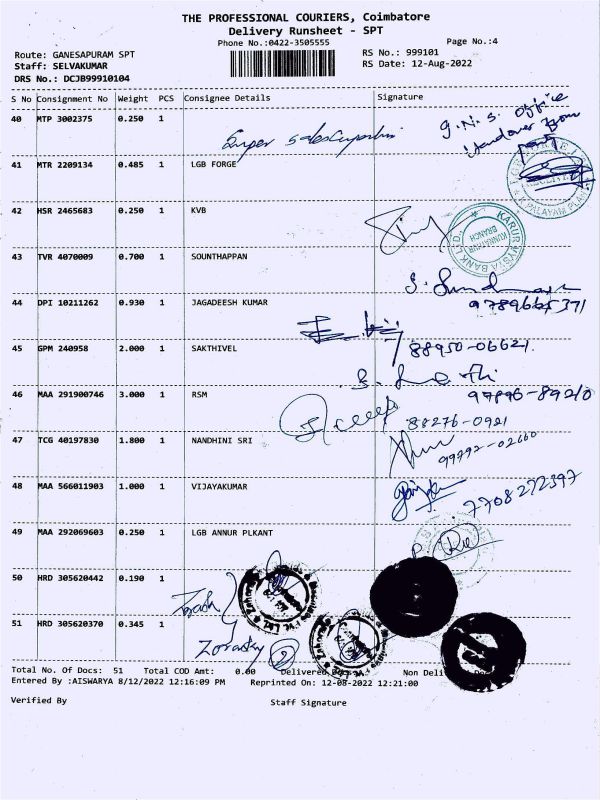 THE PROFESSIONAL COURIERS, Coimbatore
Delivery Runsheet - SPT
Phone No.:0422-3505555
Page No.:4
Route: GANESAPURAM SPT
RS No.: 999101
Staff: SELVAKUMAR
RS Date: 12-Aug-2022
DRS No.: DCJB99910104
S No Consignment No Weight PCS Consignee Details Signature
40 MTP 3002375 0.250 1
Super sales
G.N.S. Office
Handover from
41 MTR 2209134 0.485 1 LGB FORGE
K.PALAYAM PLANT
42 HSR 2465683 0.250 1 KVB
KARUR VYSYA BANK LTD.
BRANCH
43 TVR 4070009 0.700 1 SOUNTHAPPAN
44 DPI 10211262 0.930 1 JAGADEESH KUMAR
45 GPM 240958 2.000 1 SAKTHIVEL
88950-06621.
46 MAA 291900746 3.000 1 RSM
97896-89210
88276-0921
47 TCG 40197830 1.800 1 NANDHINI SRI
99792-02660
48 MAA 566011903 1.000 1 VIJAYAKUMAR
7708272397
49 MAA 292069603 0.250 1 LGB ANNUR PLKANT
50 HRD 305620442 0.190 1
51 HRD 305620370 0.345 1
2
Total No. Of Docs: 51 Total COD Amt: 0.00 Delivered Non Deli
Entered By :AISWARYA 8/12/2022 12:16:09 PM Reprinted On: 12-08-2022 12:21:00
Verified By
Staff Signature